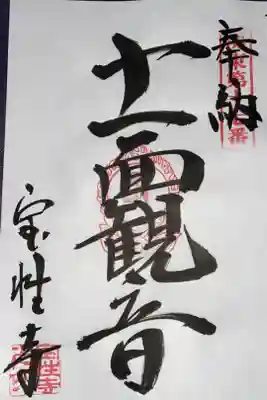 奉納
十一面観音
宝性寺